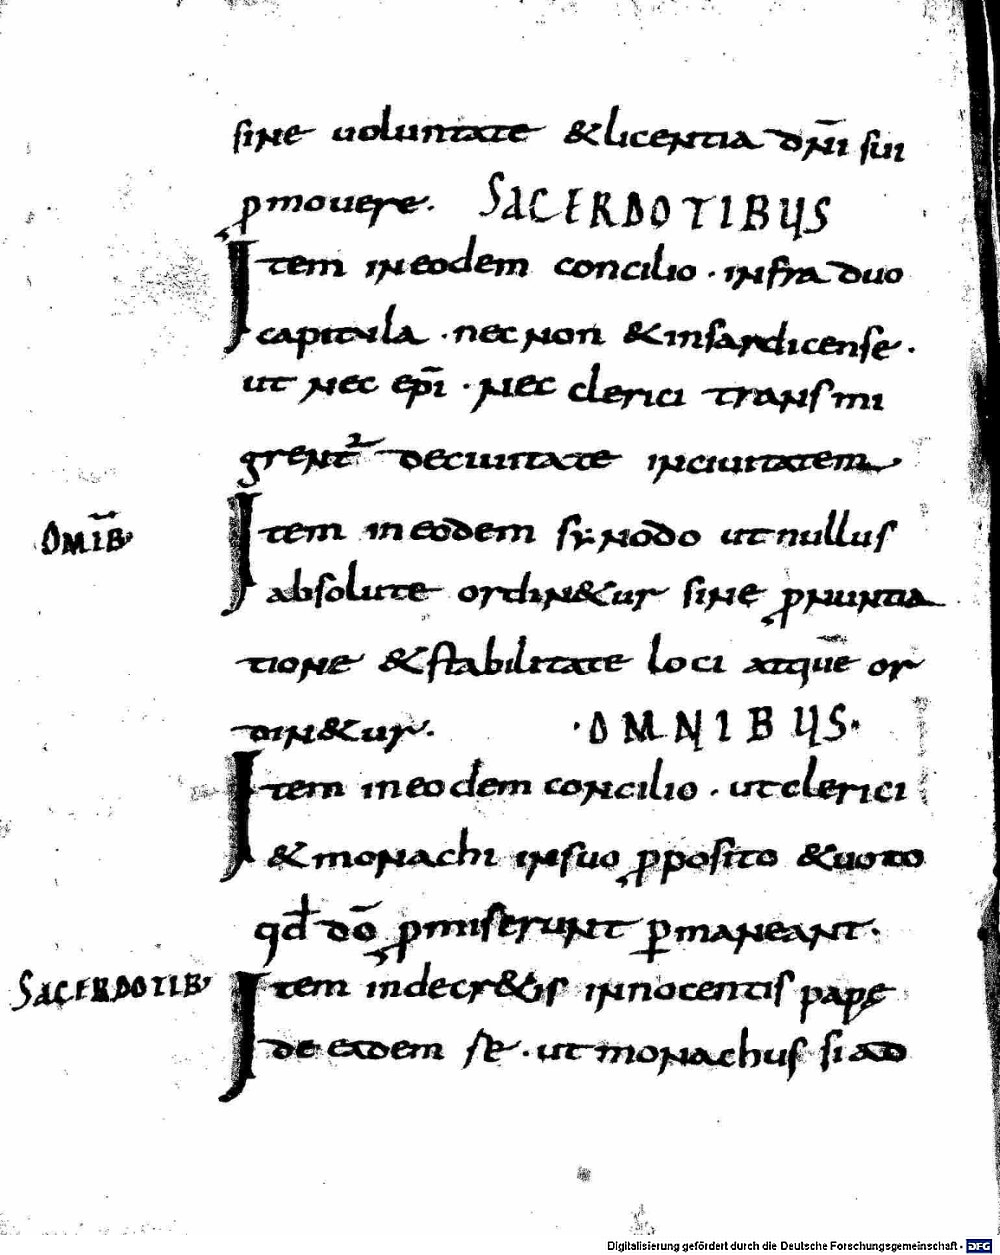 sine uoluntate &licentia dn̄i sui
ꝓmouere. SACERDOTIBUS
Item ineodem concilio · infra duo
capitula · necnon &insardicense ·
ut nec ep̄i · nec clerici transmi
grent᷑ deciuitate inciuitatem
OM̄IB;
Item ineodem synodo ut nullus
absolute ordin&ur sine ꝓnuntia
tione &stabilitate loci atquē or
din&ur. · OMNIBUS ·
Item ineodem concilio · ut clerici
&monachi insuo ꝓposito &uoto
qđ dō ꝓmiserunt ꝑmaneant.
SACERDOTIB;
Item indecr&is innocentis papę
de eadem re · ut monachus si ad
Digitalisierung gefördert durch die Deutsche Forschungsgemeinschaft - DFG